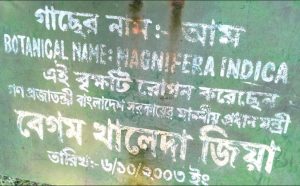 গাছের নাম:- আম
BOTANICAL NAME: MAGNIFERA INDICA
এই বৃক্ষটি রোপন করেছেন
গণ প্রজাতন্ত্রী বাংলাদেশ সরকারের মাননীয় প্রধান মন্ত্রী
বেগম খালেদা জিয়া
তারিখ:- ৬/১০/২০০৩ ইং